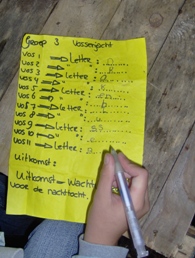 Groep 3 Vossenjacht
Vos 1 ⟹ Letter:
Vos 2 ⟹ "
Vos 3 ⟹ "
Vos 4 ⟹ Letter:
Vos 5 ⟹ "
Vos 6 ⟹ "
Vos 7 ⟹ "
Vos 8 ⟹ "
Vos 9 ⟹ Letter:
Vos 10 ⟹ "
Vos 11 ⟹ Letter:
Uitkomst:
Uitkomst = Wacht
voor de nachttocht.